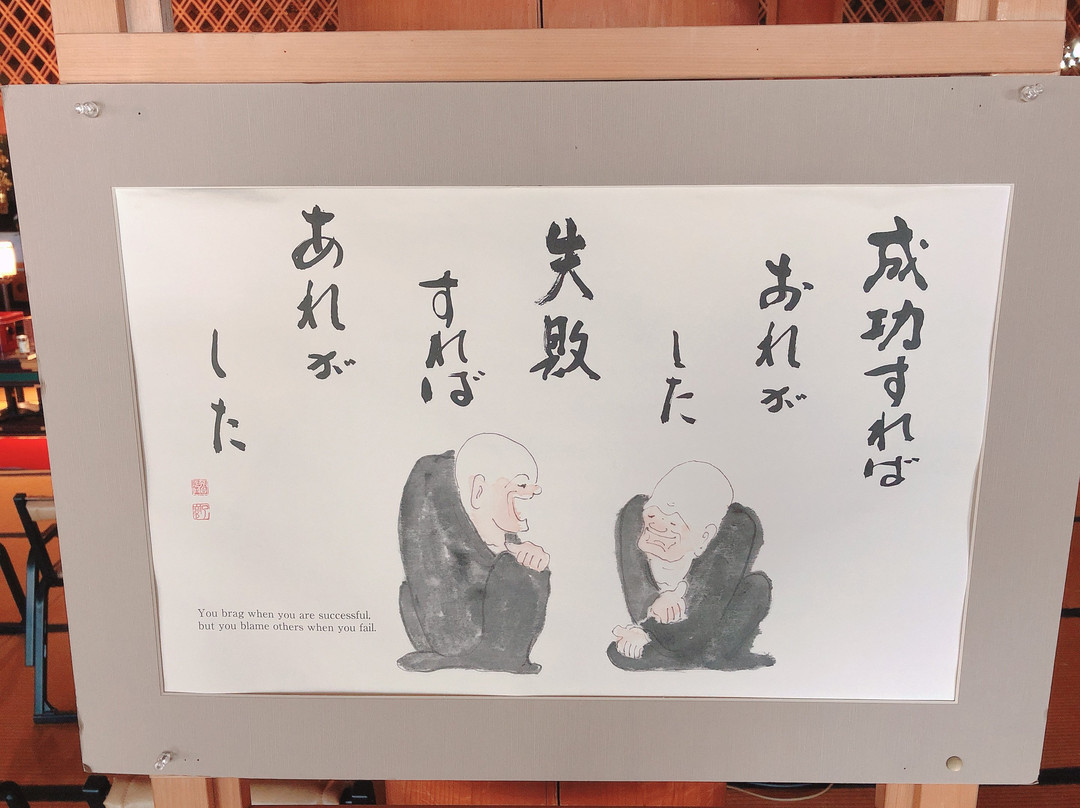 成功すれば
おれが
した
失敗
すれば
あれが
した
You brag when you are successful,
but you blame others when you fail.